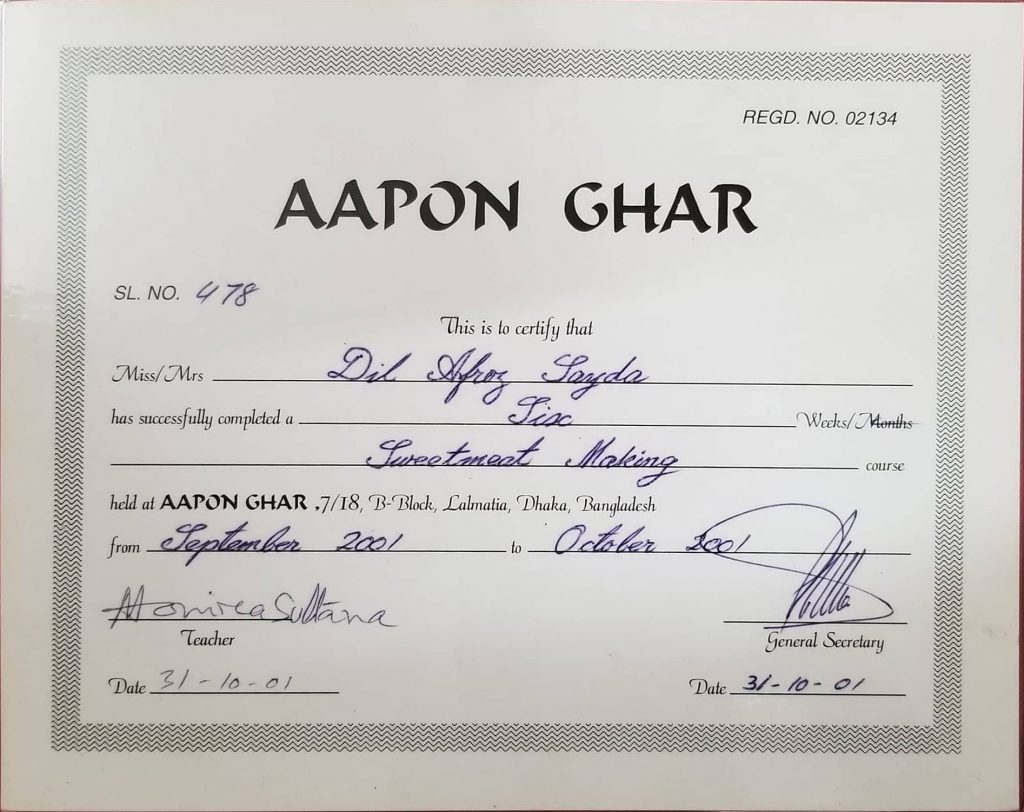 REGD. NO. 02134
AAPON GHAR
SL. NO. 478
This is to certify that
Miss/Mrs Dil Afroz Sayda
has successfully completed a Six Weeks/Months
Sweetmeat Making course
held at AAPON GHAR ,7/18, B-Block, Lalmatia, Dhaka, Bangladesh
from September 2001 to October 2001
Monira Sultana
Teacher General Secretary
Date 31-10-01 Date 31-10-01